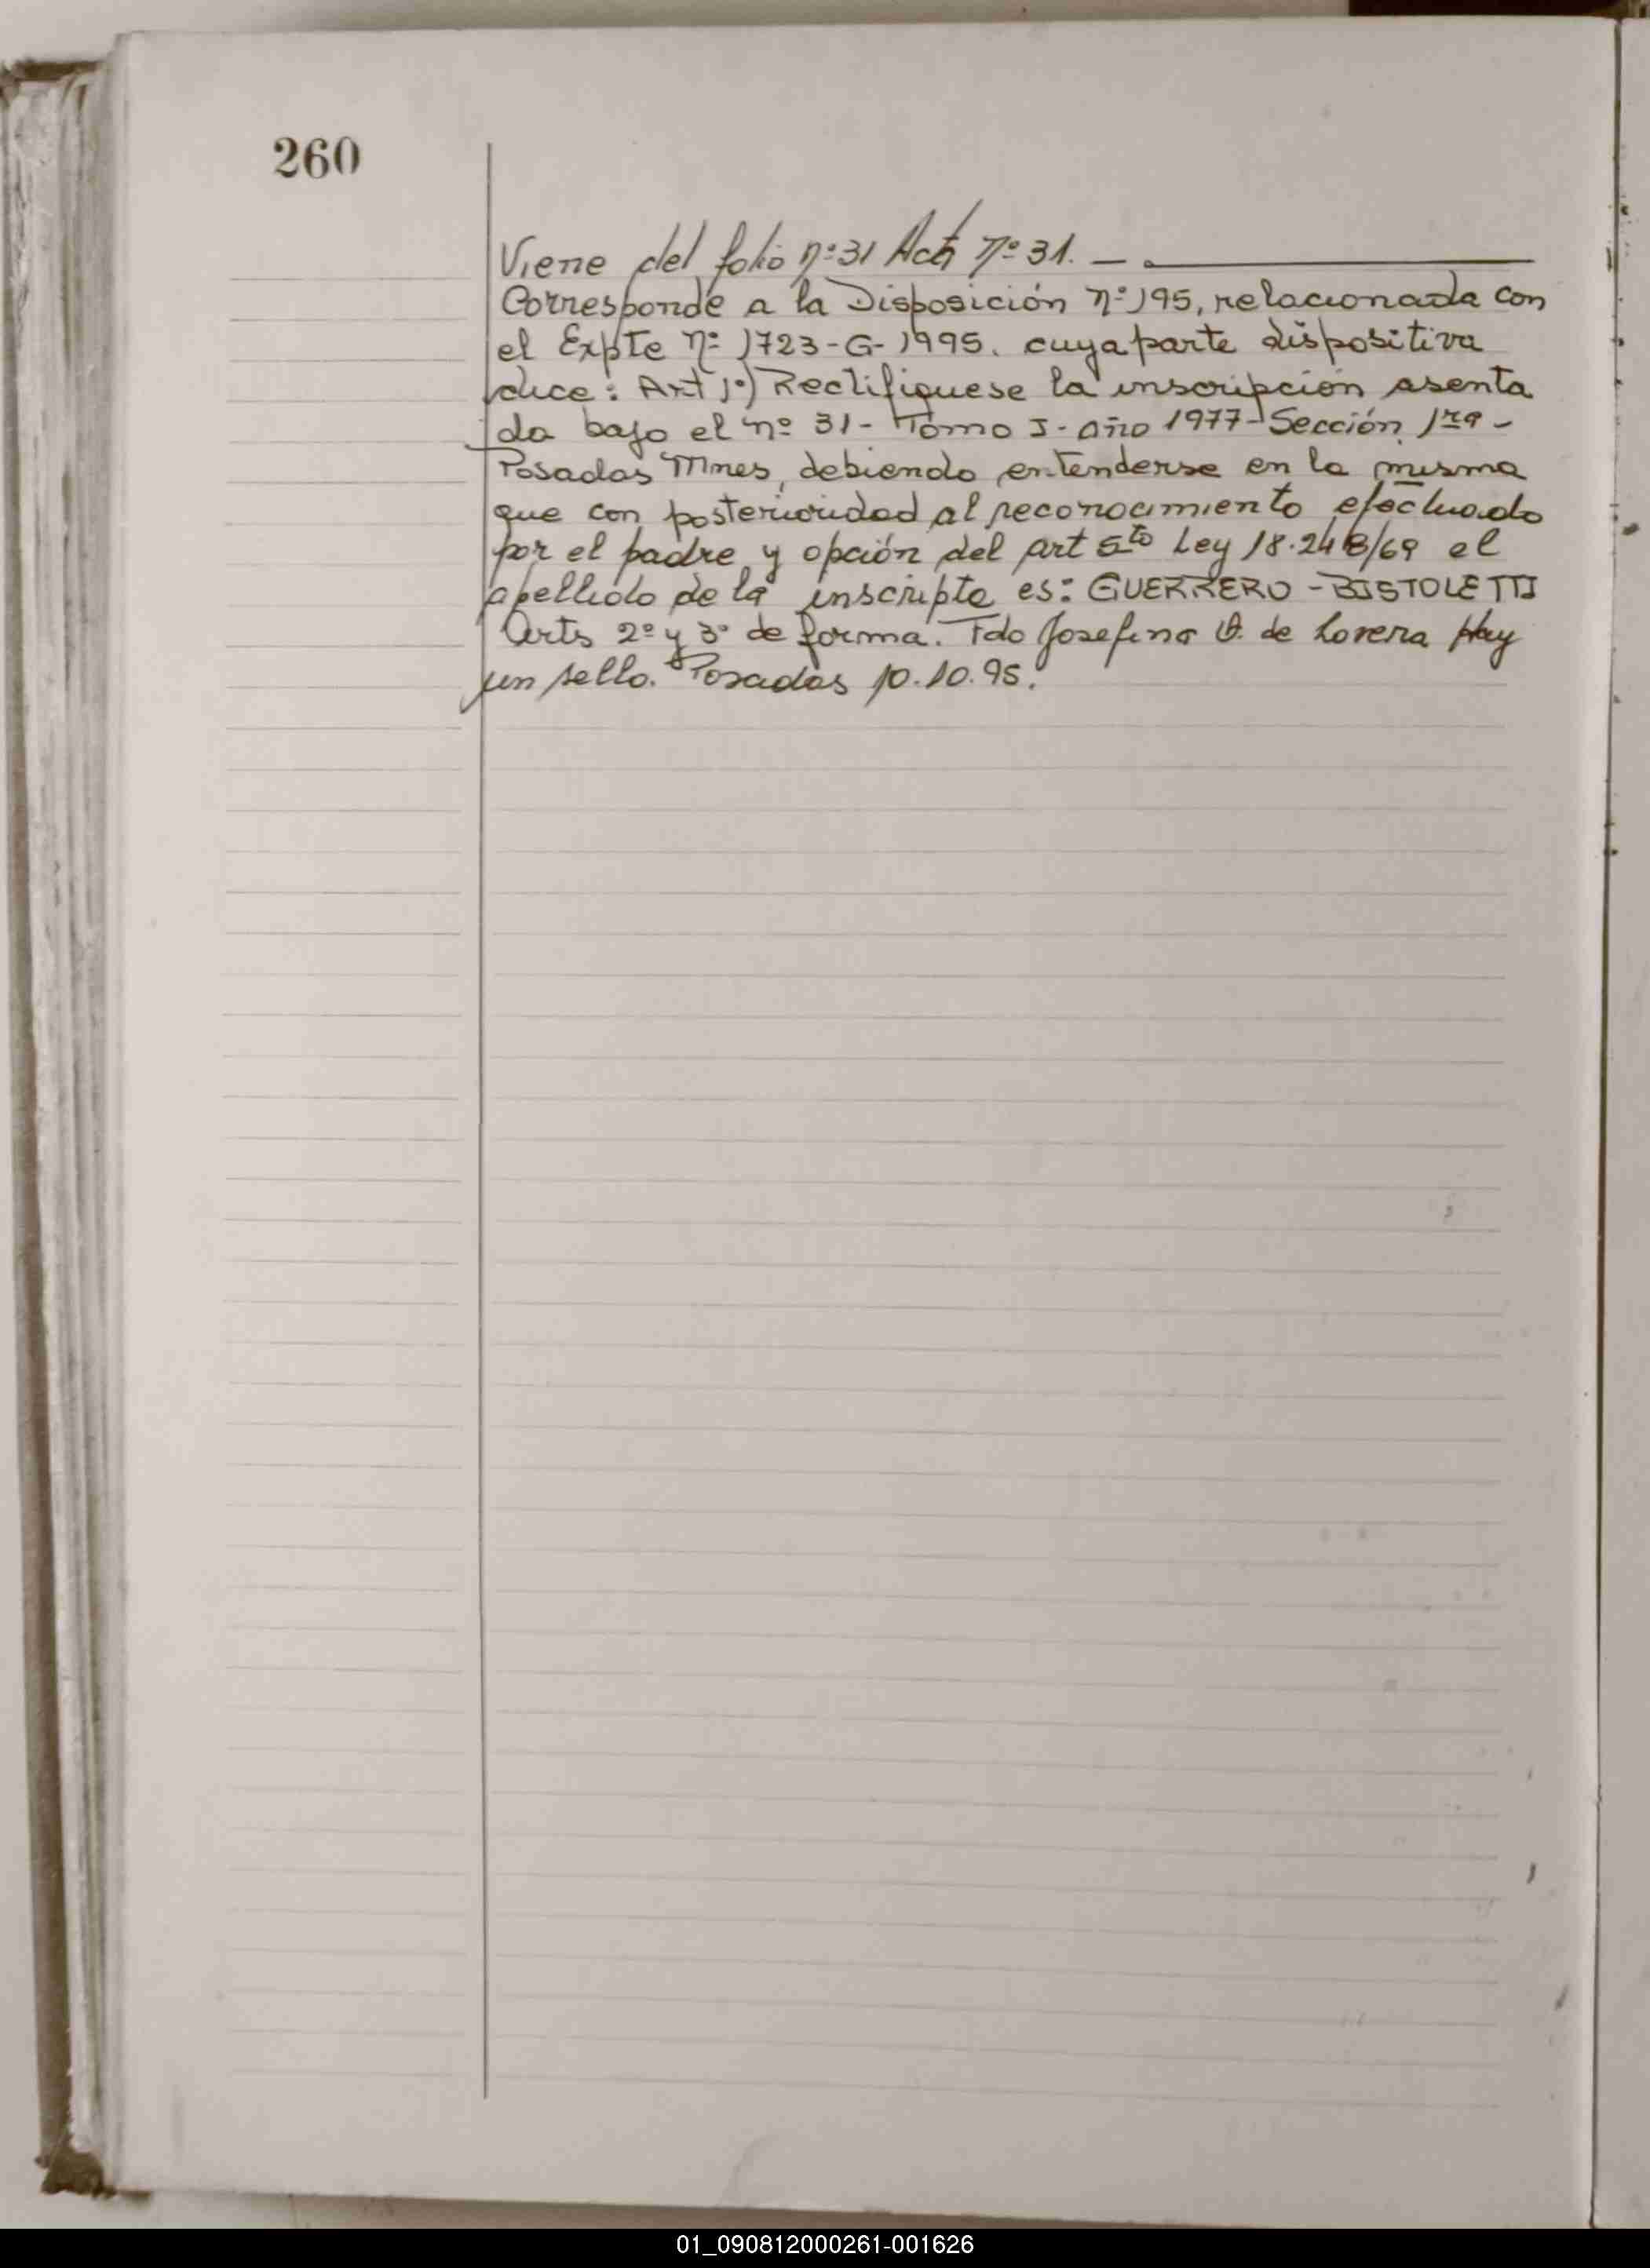 260
Viene del folio nº 31 Acta nº 31. —
Corresponde a la Disposición nº 195, relacionada con
el Expte nº 1723-G-1995. cuya parte dispositiva
dice: Art 1º) Rectifiquese la inscripción asenta
da bajo el nº 31- Tomo I- año 1977- Sección 1ra -
Posadas Mnes, debiendo entenderse en la misma
que con posterioridad al reconocimiento efectuado
por el padre y opción del art 5to Ley 18.248/69 el
apellido de la inscripta es: GUERRERO - BISTOLETTI
Arts 2º y 3º de forma. Fdo Josefina de Lovera Hay
un sello. Posadas 10.10.95.
01_090812000261-001626